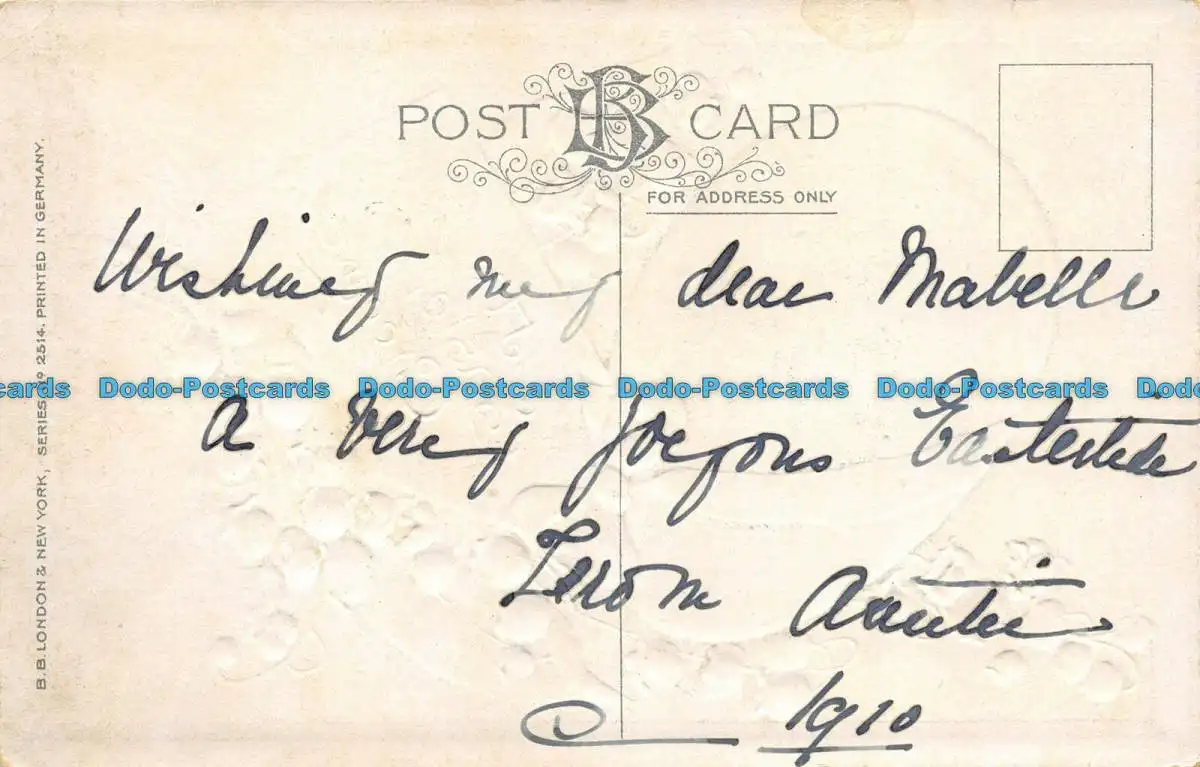 POST BB CARD
FOR ADDRESS ONLY
Wishing my dear Mabelle
Dodo-Postcards Dodo-Postcards Dodo-Postcards Dodo-Postcards
A very joyous Eastertide
From Auntie
1910
B.B. LONDON & NEW YORK, SERIES Nº 2514. PRINTED IN GERMANY.